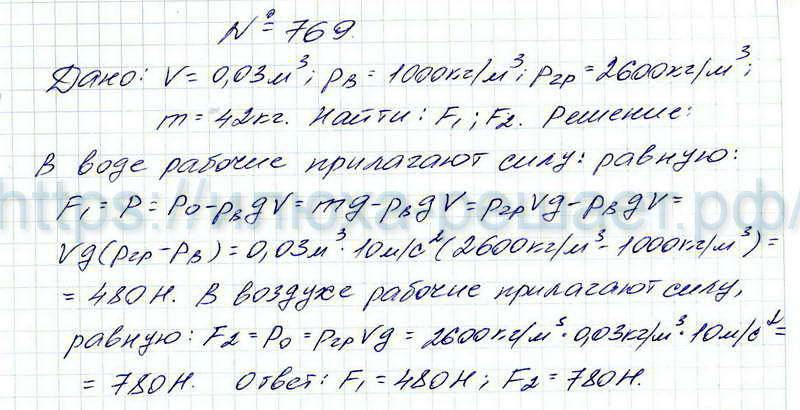 № 769.
Дано: V = 0,03 м³; ρв = 1000 кг/м³; ρгр = 2600 кг/м³;
m = 42 кг. Найти: F₁; F₂. Решение:
В воде рабочие прилагают силу: равную:
F₁ = P = P₀ - ρвgV = mg - ρвgV = ρгрVg - ρвgV =
Vg(ρгр - ρв) = 0,03 м³ · 10 м/с² (2600 кг/м³ - 1000 кг/м³) =
= 480 Н. В воздухе рабочие прилагают силу,
равную: F₂ = P₀ = ρгрVg = 2600 кг/м³ · 0,03 кг/м³ · 10 м/с² =
= 780 Н. Ответ: F₁ = 480 Н; F₂ = 780 Н.